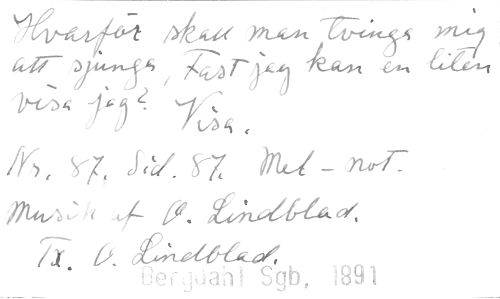 Hvarför skall man tvinga mig
att sjunga, Fast jag kan en liten
visa jag? Visa.
Nr. 87. Sid. 87. Mel - not.
Musik af O. Lindblad.
Tx. O. Lindblad.
Bergdahl Sgb, 1891